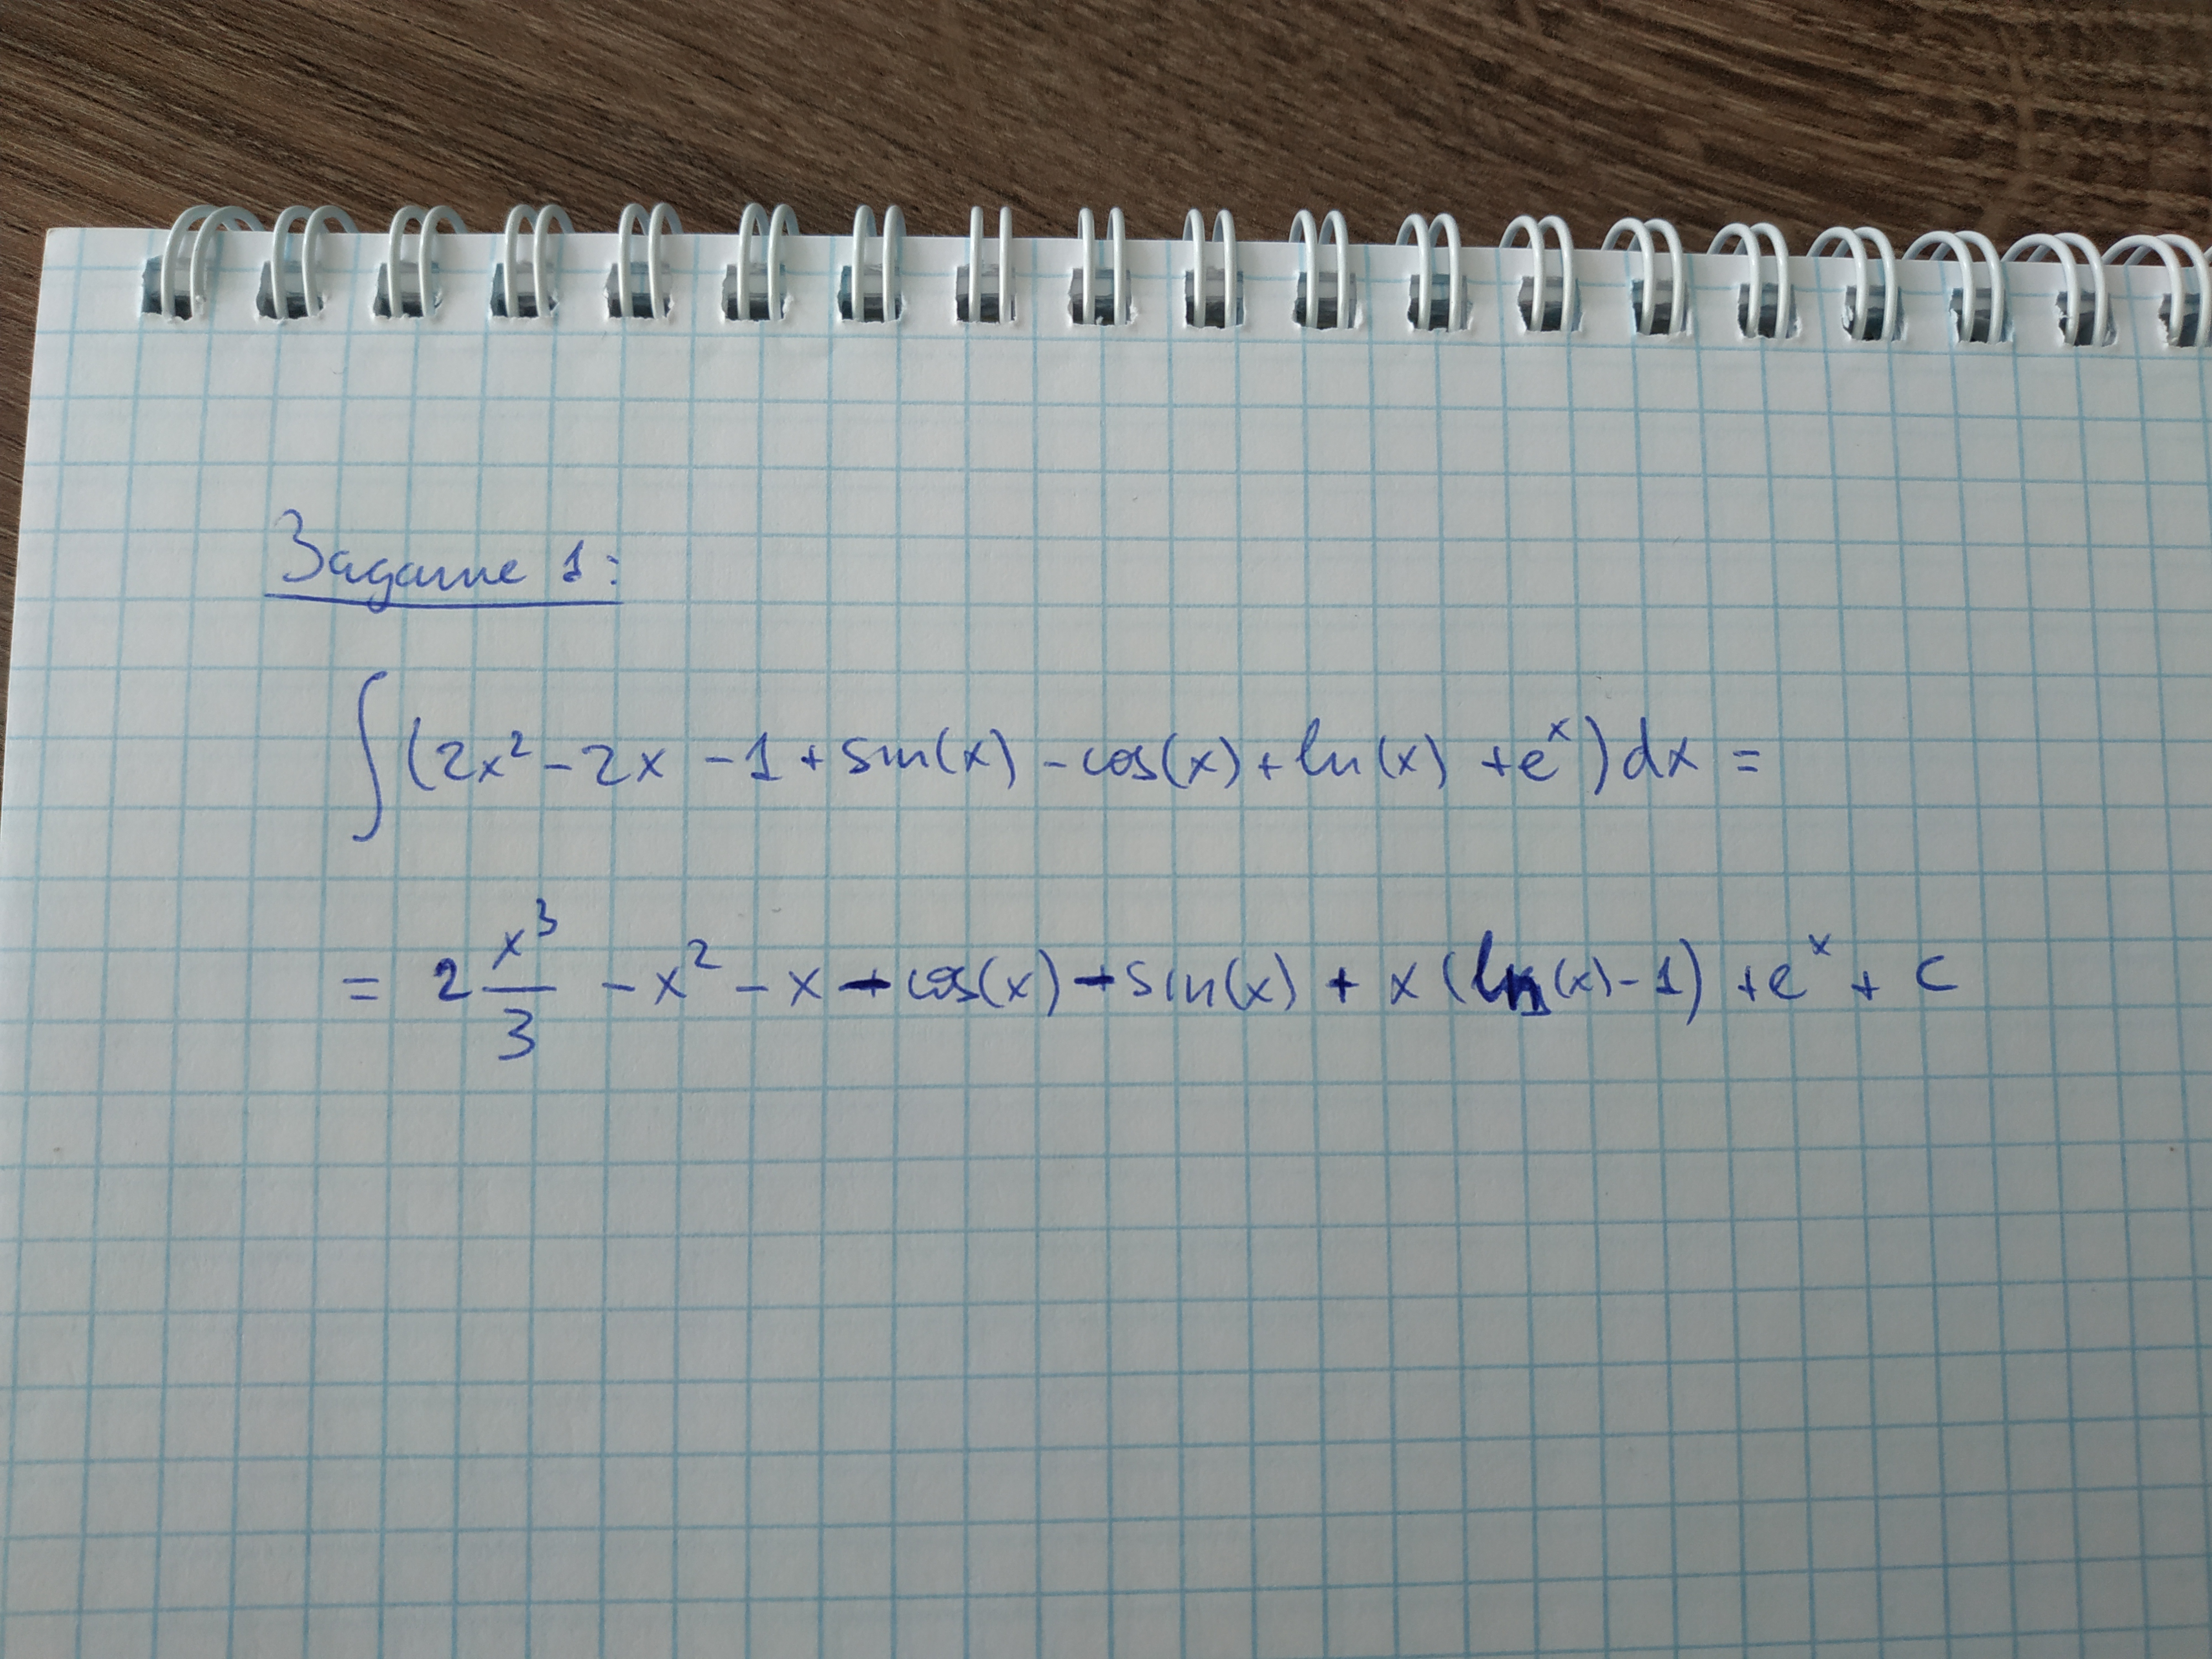 Задание 1:
∫(2x² - 2x - 1 + sin(x) - cos(x) + ln(x) + eˣ)dx =
= 2 x³/3 - x² - x - cos(x) - sin(x) + x(ln(x) - 1) + eˣ + c